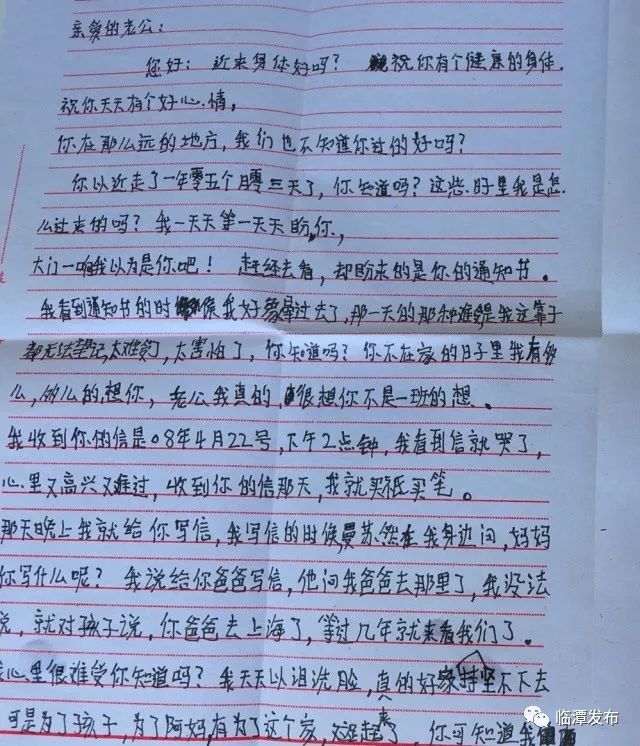 亲爱的老公：
您好：近来身体好吗？祝你有个健康的身体.
祝你天天有个好心情，
你在那么远的地方，我们也不知道你过的好吗？
你以近走了一年零五个月零三天了，你知道吗？这些时里我是怎
么过来的吗？我一天天等一天天盼你，
大门一响我以为是你吧！赶经去看，却盼来的是你的通知书。
我看到通知书的时候我好象晕过去了，那一天的那种难我这辈子
都无法望记，太难受了，太害怕了，你知道吗？你不在家的日子里我有够
么，够么的，想你，老公我真的，很想你不是一班的想。
我收到你的信是08年4月22号，下午2点钟，我看到信就哭了，
心里又高兴又难过，收到你的信那天，我就买纸买笔。
那天晚上我就给你写信，我写信的时候曼苏然在我身边问，妈妈
你写什么呢？我说给你爸爸写信，他问我爸爸去那里了，我没法
说，就对孩子说，你爸爸去上海了，等过几年就来看我们了。
心里很难受你知道吗？我天天以泪洗脸，真的好坚不下去
可是为了孩子，为了阿妈，有为了这个家，你可知道我
临潭发布